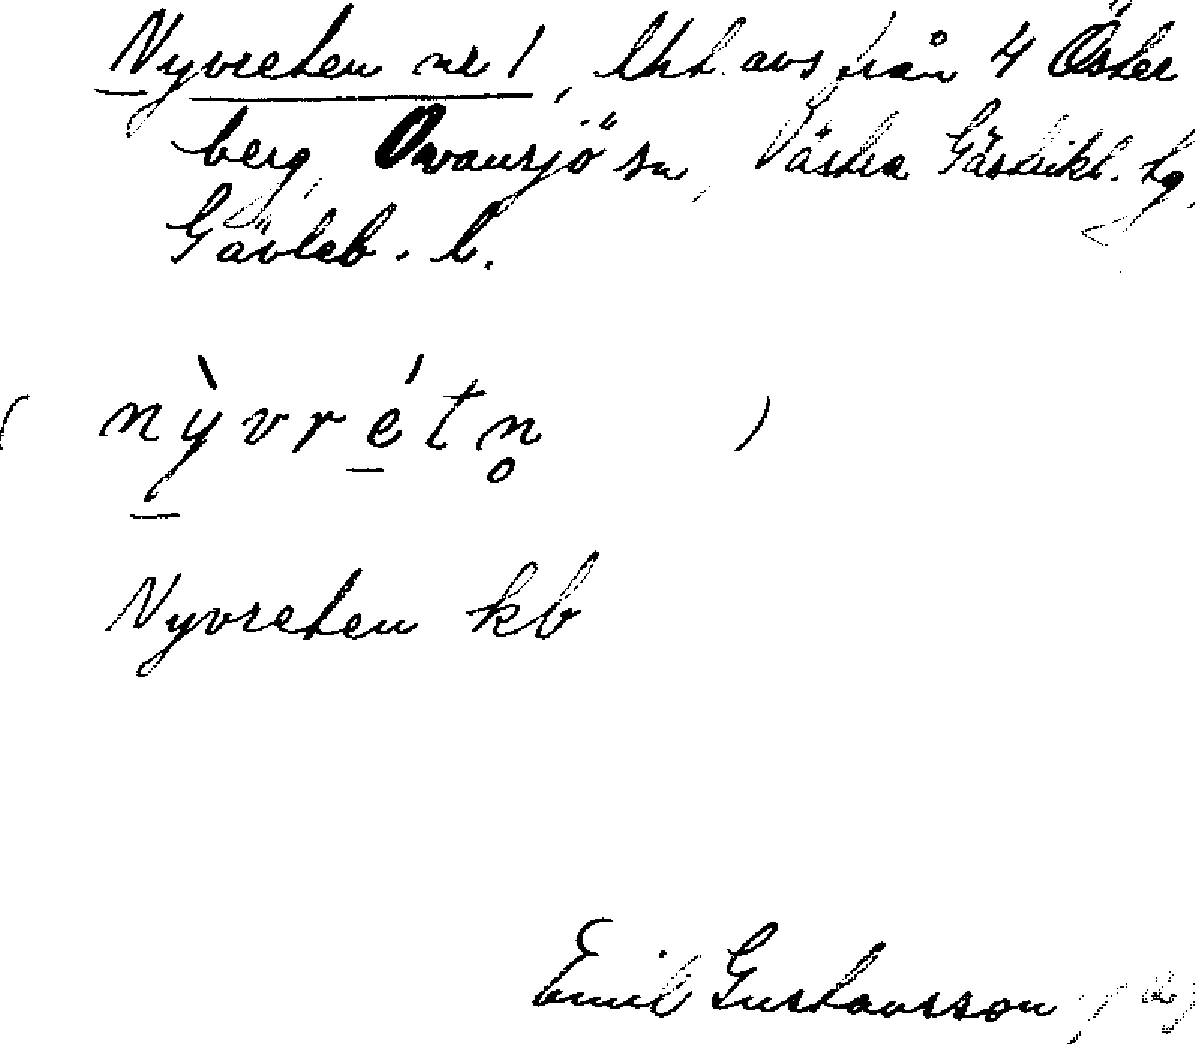 Nyvreten nr 1, lht. avs från 4 Öster
berg, Ovansjö sn, Västra Gästrikl. tg,
Gävleb. l.
( nỳvrétn̥ )
Nyvreten kb
Emil Gustavsson